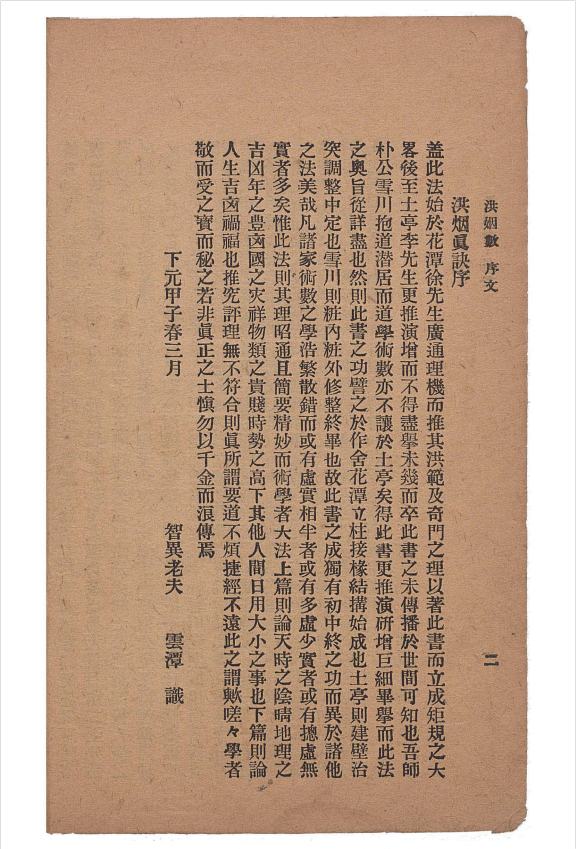 洪烟數 序文 二
洪烟眞訣序
盖此法始於花潭徐先生廣通理機而推其洪範及奇門之理以著此書而立成矩規之大
畧後至土亭李先生更推演增而不得盡擧未幾而卒此書之未傳播於世間可知也吾師
朴公雪川抱道潜居而道學術數亦不讓於土亭矣得此書更推演硏增巨細畢擧而此法
之奥旨從詳盡也然則此書之功譬之於作舍花潭立柱接椽結搆始成也土亭則建壁治
突調整中定也雪川則粧內粧外修整終畢也故此書之成獨有初中終之功而異於諸他
之法美哉凡諸家術數之學浩繁散錯而或有虛實相半者或有多虛少實者或有摠虛無
實者多矣惟此法則其理昭通且簡要精妙而術學者大法上篇則論天時之陰晴地理之
吉凶年之豊凾國之灾祥物類之貴賤時勢之高下其他人間日用大小之事也下篇則論
人生吉凾禍福也推究評理無不符合則眞所謂要道不煩捷經不遠此之謂歟嗟々學者
敬而受之寶而秘之若非眞正之士愼勿以千金而浪傳焉
下元甲子春三月
智異老夫 雲潭 識